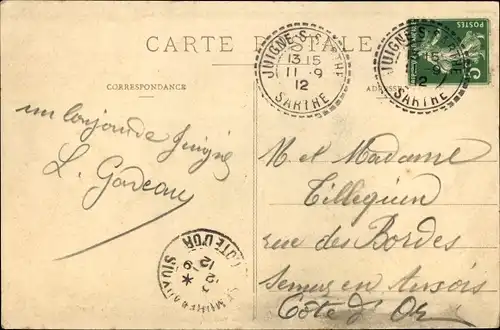 CARTE POSTALE
CORRESPONDANCE
un bonjour de Juigné
L. Gondeau
JUIGNÉ-S-SARTHE
13 15
11 - 9
12
SARTHE
JUIGNÉ-S-
15
9
12
SARTHE
POSTES
M. et Madame
Tilleguien
rue des Bordes
Semur en Auxois
Côte d'Or
CÔTE D'OR
12
9